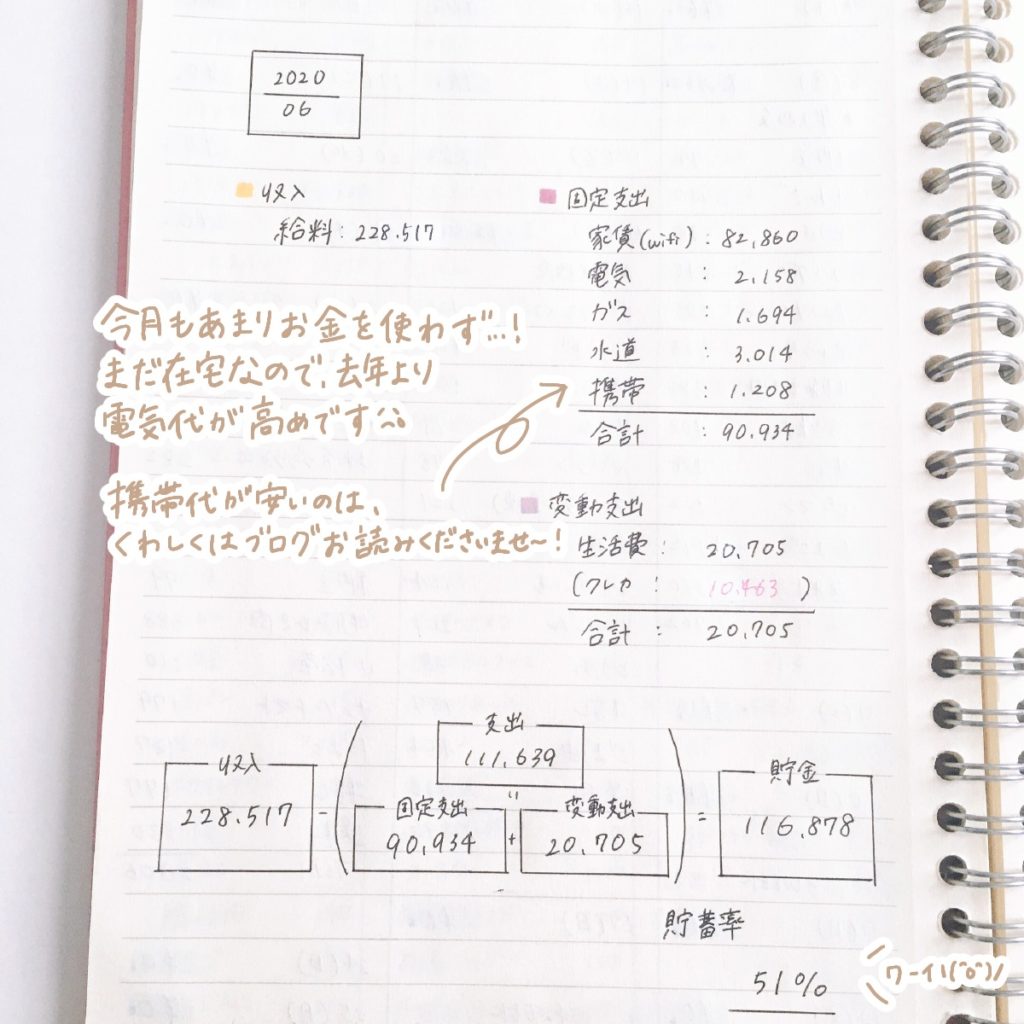 2020
06
収入
給料：228.517
固定支出
家賃(wifi)：82,860
電気：2,158
ガス：1.694
水道：3.014
携帯：1.208
合計：90,934
今月もあまりお金を使わず...！
まだ在宅なので、去年より
電気代が高めです^^
携帯代が安いのは、
くわしくはブログお読みくださいませ〜！
変動支出
生活費：20,705
(クレカ：10.463)
合計：20,705
収入
228.517
-
(
支出
111,639
"
固定支出
90,934
+
変動支出
20,705
)
=
貯金
116,878
貯蓄率
51%
ワーイ！(^o^)/